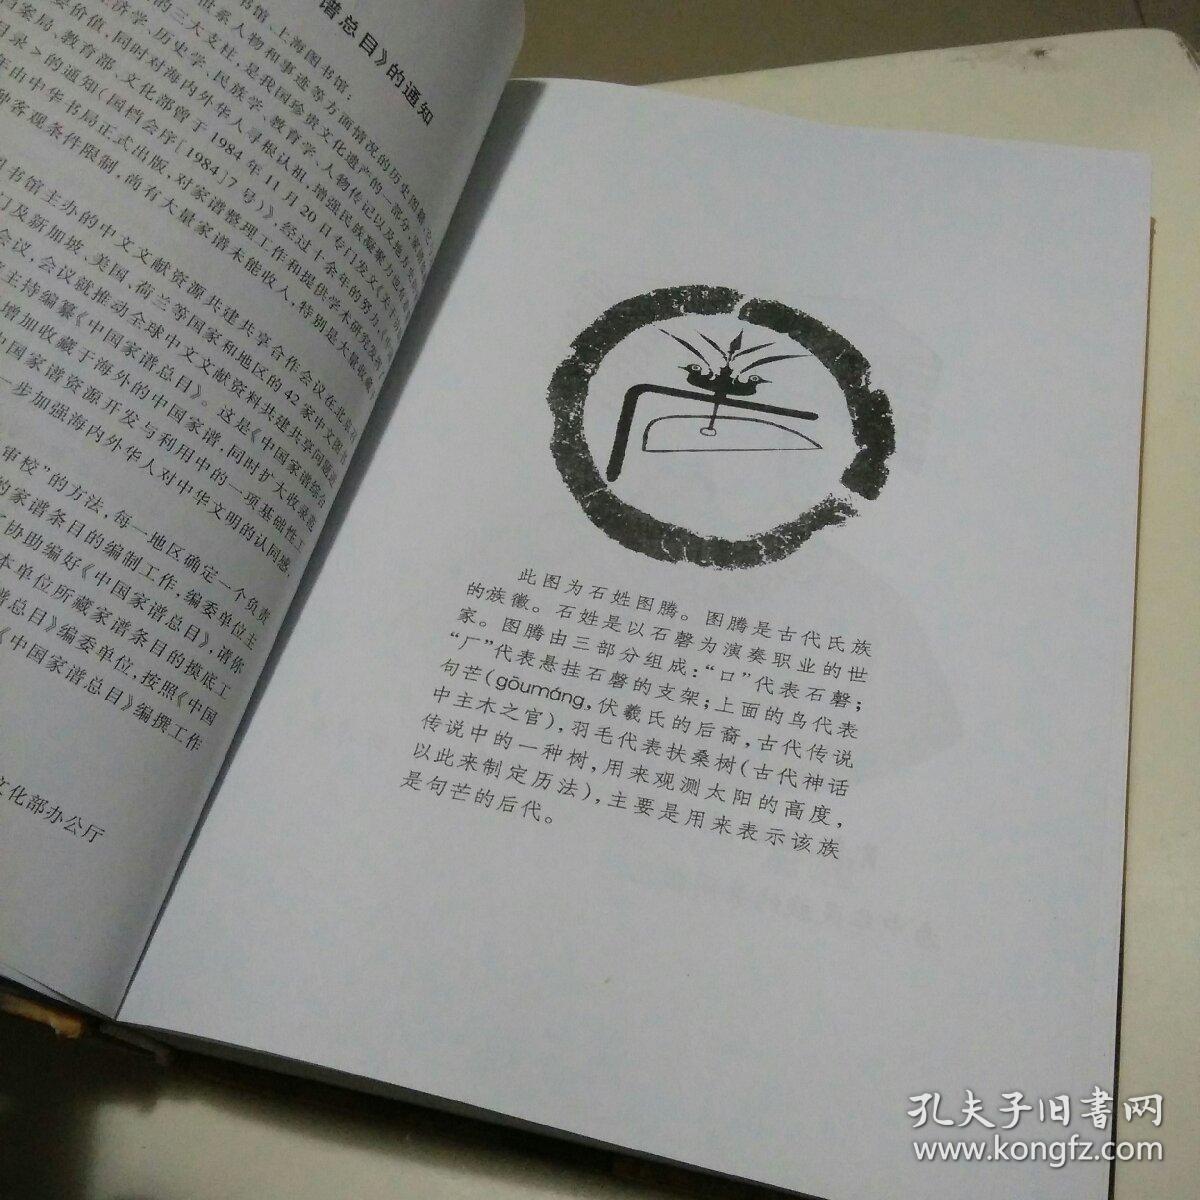 谱总目》的通知
书馆、上海图书馆:
世系人物和事迹等方面情况的历史图籍
的三大支柱,是我国珍贵文化遗产的一部分
济学、历史学、民族学、教育学、人物传记以及地方
要价值,同时对海内外华人寻根认祖,增强民族凝聚力也有
档案局、教育部、文化部曾于1984年11月20日专门发文《关于
目录>的通知(国档会序[1984]7号)》,经过十余年的努力
年由中华书局正式出版,对家谱整理工作和提供学术研究发挥
种客观条件限制,尚有大量家谱未能收入,特别是大量收藏
图书馆主办的中文文献资源共建共享合作会议在北京
门及新加坡、美国、荷兰等国家和地区的42家中文图书
会议,会议就推动全球中文文献资料共建共享问题进
主持编纂《中国家谱总目》。这是《中国家谱综合
增加收藏于海外的中国家谱,同时扩大收录范
中国家谱资源开发与利用中的一项基础性工
一步加强海内外华人对中华文明的认同感,
审校”的方法,每一地区确定一个负责
的家谱条目的编制工作,编委单位主
协助编好《中国家谱总目》,请你
本单位所藏家谱条目的摸底工
谱总目》编委单位,按照《中国
《中国家谱总目》编撰工作
文化部办公厅
此图为石姓图腾。图腾是古代氏族
的族徽。石姓是以石磬为演奏职业的世
家。图腾由三部分组成:“口”代表石磬;
“厂”代表悬挂石磬的支架;上面的鸟代表
句芒(gōumáng,伏羲氏的后裔,古代传说
中主木之官),羽毛代表扶桑树(古代神话
传说中的一种树,用来观测太阳的高度,
以此来制定历法),主要是用来表示该族
是句芒的后代。
孔夫子旧书网
www.kongfz.com